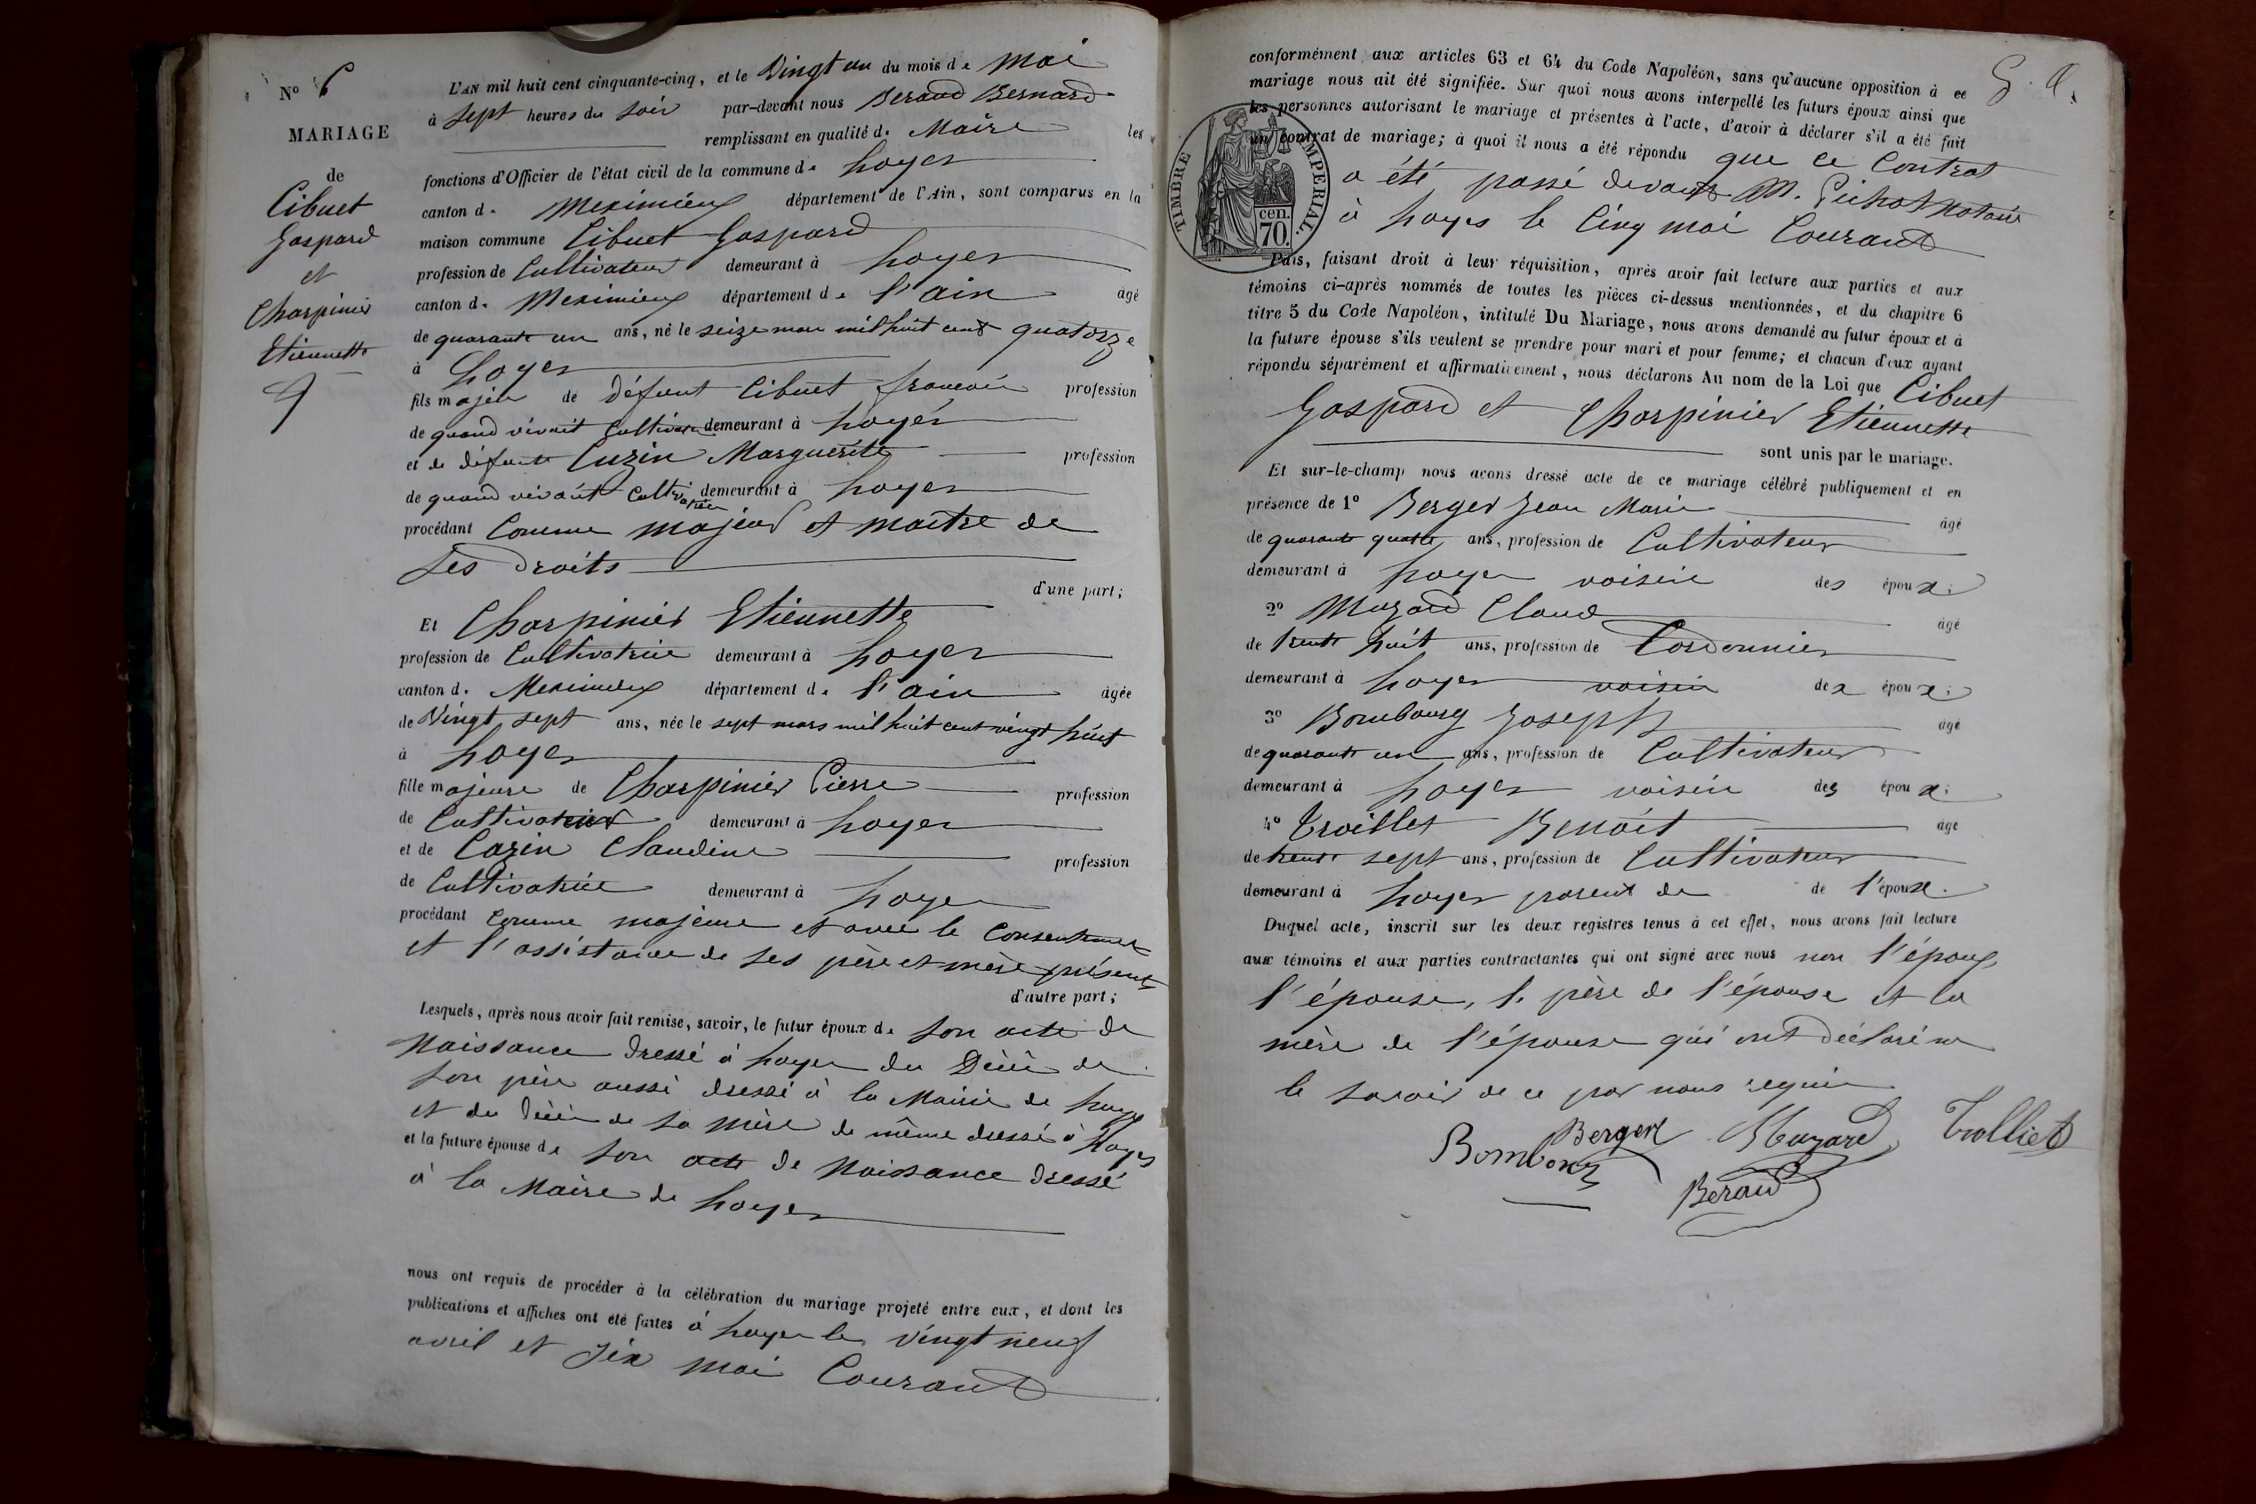 N° 6
MARIAGE
de
Cibuet
Gaspard
et
Charpinier
Etiennette
L'AN mil huit cent cinquante-cinq, et le Vingt un du mois de Mai
à Sept heures du Soir par-devant nous Beraud Bernard
remplissant en qualité de Maire les
fonctions d'Officier de l'état civil de la commune de Loyes
canton de Meximieux département de l'Ain, sont comparus en la
maison commune Cibuet Gaspard
profession de Cultivateur demeurant à Loyes
canton de Meximieux département de l'ain âgé
de quarante un ans, né le seize mars mil huit cent quatorze
à Loyes
fils majeur de défunt Cibuet francois profession
de quand vivait Cultivateur demeurant à Loyes
et de défunte Cuzin Marguerite profession
de quand vivait Cultivatrice demeurant à Loyes
procédant Comme majeur et maitre de
Ses droits
d'une part;
Et Charpinier Etiennette
profession de Cultivatrice demeurant à Loyes
canton de Meximieux département de l'ain âgée
de Vingt sept ans, née le sept mars mil huit cent vingt huit
à Loyes
fille majeure de Charpinier Pierre profession
de Cultivateur demeurant à Loyes
et de Cazin Claudine profession
de Cultivatrice demeurant à Loyes
procédant Comme majeure et avec le Consentement
et l'assistance de ses père et mère présents
d'autre part;
Lesquels, après nous avoir fait remise, savoir, le futur époux de son acte de
Naissance dressé à Loyes du Décès de
son père aussi dressé à la Mairie de Loyes
et du Décès de sa mère de même dressé à Loyes
et la future épouse de son acte de Naissance dressé
à la Maire de Loyes
nous ont requis de procéder à la célébration du mariage projeté entre eux, et dont les
publications et affiches ont été faites à Loyes les vingt neuf
avril et six mai Courant
conformément aux articles 63 et 64 du Code Napoléon, sans qu'aucune opposition à ce
mariage nous ait été signifiée. Sur quoi nous avons interpellé les futurs époux ainsi que
les personnes autorisant le mariage et présentes à l'acte, d'avoir à déclarer s'il a été fait
un contrat de mariage; à quoi il nous a été répondu que ce Contrat
a été passé devant M. Pichot Notaire
à Loyes le Cinq mai Courant
TIMBRE IMPERIAL.
cen.
70.
Puis, faisant droit à leur réquisition, après avoir fait lecture aux parties et aux
témoins ci-après nommés de toutes les pièces ci-dessus mentionnées, et du chapitre 6
titre 5 du Code Napoléon, intitulé Du Mariage, nous avons demandé au futur époux et à
la future épouse s'ils veulent se prendre pour mari et pour femme; et chacun d'eux ayant
répondu séparément et affirmativement, nous déclarons Au nom de la Loi que Cibuet
Gaspard et Charpinier Etiennette
sont unis par le mariage.
Et sur-le-champ nous avons dressé acte de ce mariage célébré publiquement et en
présence de 1° Berger Jean Marie âgé
de quarante quatre ans, profession de Cultivateur
demeurant à Loyes voisin des époux;
2° Muzard Claud âgé
de trente huit ans, profession de Cordonnier
demeurant à Loyes voisin des époux;
3° Bombourg Joseph âgé
de quarante un ans, profession de Cultivateur
demeurant à Loyes voisin des époux;
4° Troillet Benoît âgé
de trente sept ans, profession de Cultivateur
demeurant à Loyes parent de de l'épouse.
Duquel acte, inscrit sur les deux registres tenus à cet effet, nous avons fait lecture
aux témoins et aux parties contractantes qui ont signé avec nous non l'époux,
l'épouse, le père de l'épouse et la
mère de l'épouse qui ont déclaré ne
le savoir de ce par nous requis
Berger Muzard Trolliet
Bombourg
Beraud